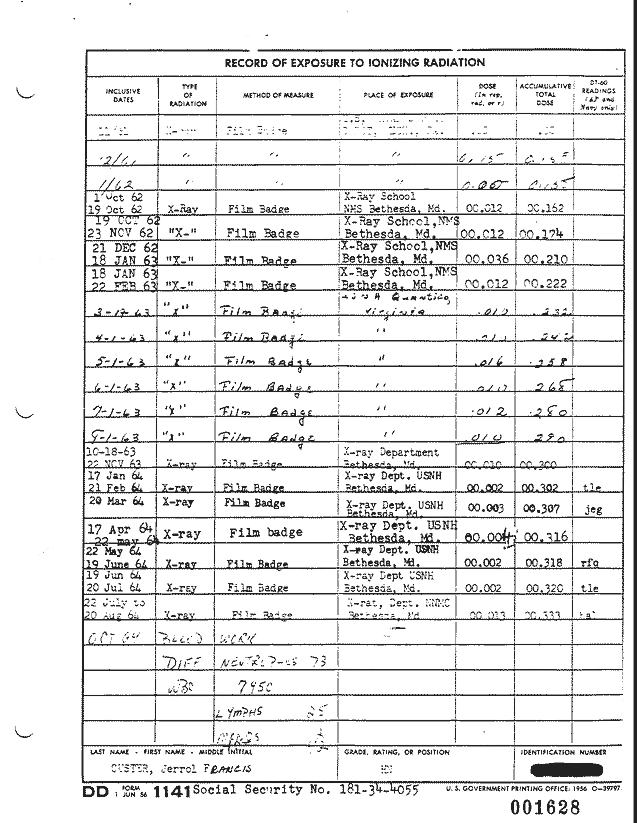 RECORD OF EXPOSURE TO IONIZING RADIATION
INCLUSIVE DATES TYPE OF RADIATION METHOD OF MEASURE PLACE OF EXPOSURE DOSE (In rep, rad, or r) ACCUMULATIVE TOTAL DOSE DT-60 READINGS (AF and Navy only)
X-ray Film Badge
12/61 " " "
1/62 " " "
1 Oct 62 X-Ray School
19 Oct 62 X-Ray Film Badge NHS Bethesda, Md. 00.012 00.162
19 OCT 62 X-Ray School, NMS
23 NOV 62 "X-" Film Badge Bethesda, Md. 00.012 00.174
21 DEC 62 X-Ray School, NMS
18 JAN 63 "X-" Film Badge Bethesda, Md. 00.036 00.210
18 JAN 63 X-Ray School, NMS
22 FEB 63 "X-" Film Badge Bethesda, Md. 00.012 00.222
Quantico,
3-17-63 "X" Film Badge Virginia .010 .232
4-1-63 "X" Film Badge " .242
5-1-63 "X" Film Badge " .016 .258
6-1-63 "X" Film Badge " .010 268
7-1-63 "X" Film Badge " .012 .280
"X" Film Badge " .010 .290
10-18-63 X-ray Department
22 NOV 63 X-ray Film Badge Bethesda, Md. 00.010 00.300
17 Jan 64 X-ray Dept. USNH
21 Feb 64 X-ray Film Badge Bethesda, Md. 00.002 00.302 tle
20 Mar 64 X-ray Film Badge X-ray Dept. USNH Bethesda, Md. 00.003 00.307 jeg
17 Apr 64 X-ray Dept. USNH
22 may 64 X-ray Film badge Bethesda, Md. 00.004 00.316
22 May 64 X-ray Dept. USNH
19 June 64 X-ray Film Badge Bethesda, Md. 00.002 00.318 rfq
19 Jun 64 X-ray Dept USNH
20 Jul 64 X-ray Film Badge Bethesda, Md. 00.002 00.320 tle
22 July to X-rat, Dept. NNMC
20 Aug 64 X-ray Film Badge Bethesda, Md 00.013 00.333
OCT 64 BLOOD WORK
DIFF 73
WBC 7950
LYMPHS 25
LAST NAME - FIRST NAME - MIDDLE INITIAL GRADE, RATING, OR POSITION IDENTIFICATION NUMBER
CUSTER, Jerrol FRANCIS
DD FORM 1 JUN 56 1141 Social Security No. 181-34-4055 U. S. GOVERNMENT PRINTING OFFICE: 1956 O-39797
001628